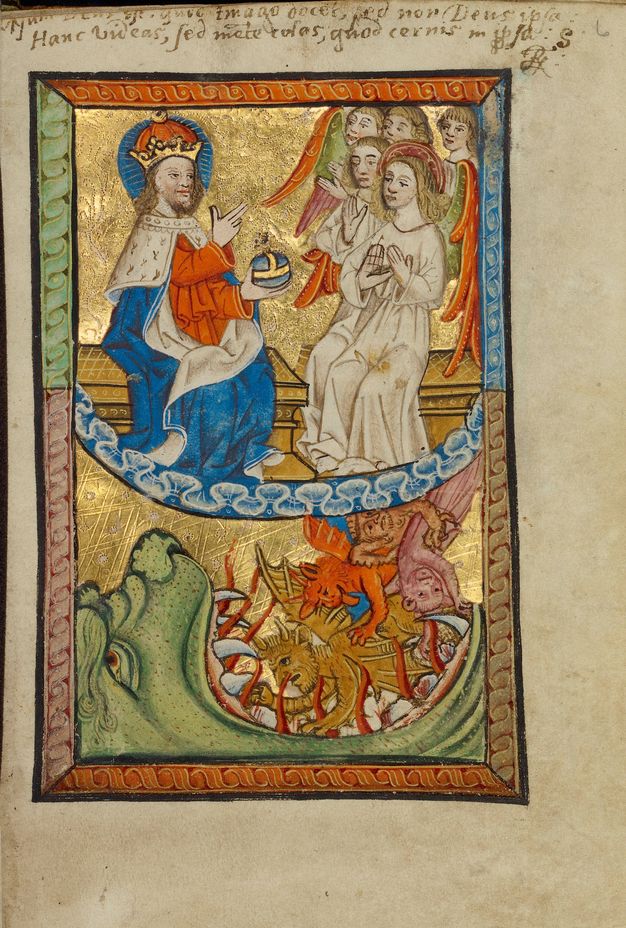 Nam Deus est, quod Imago docet, sed non Deus ipsa
Hanc Videas, sed mēte colas, quod cernis in ipsa S
6